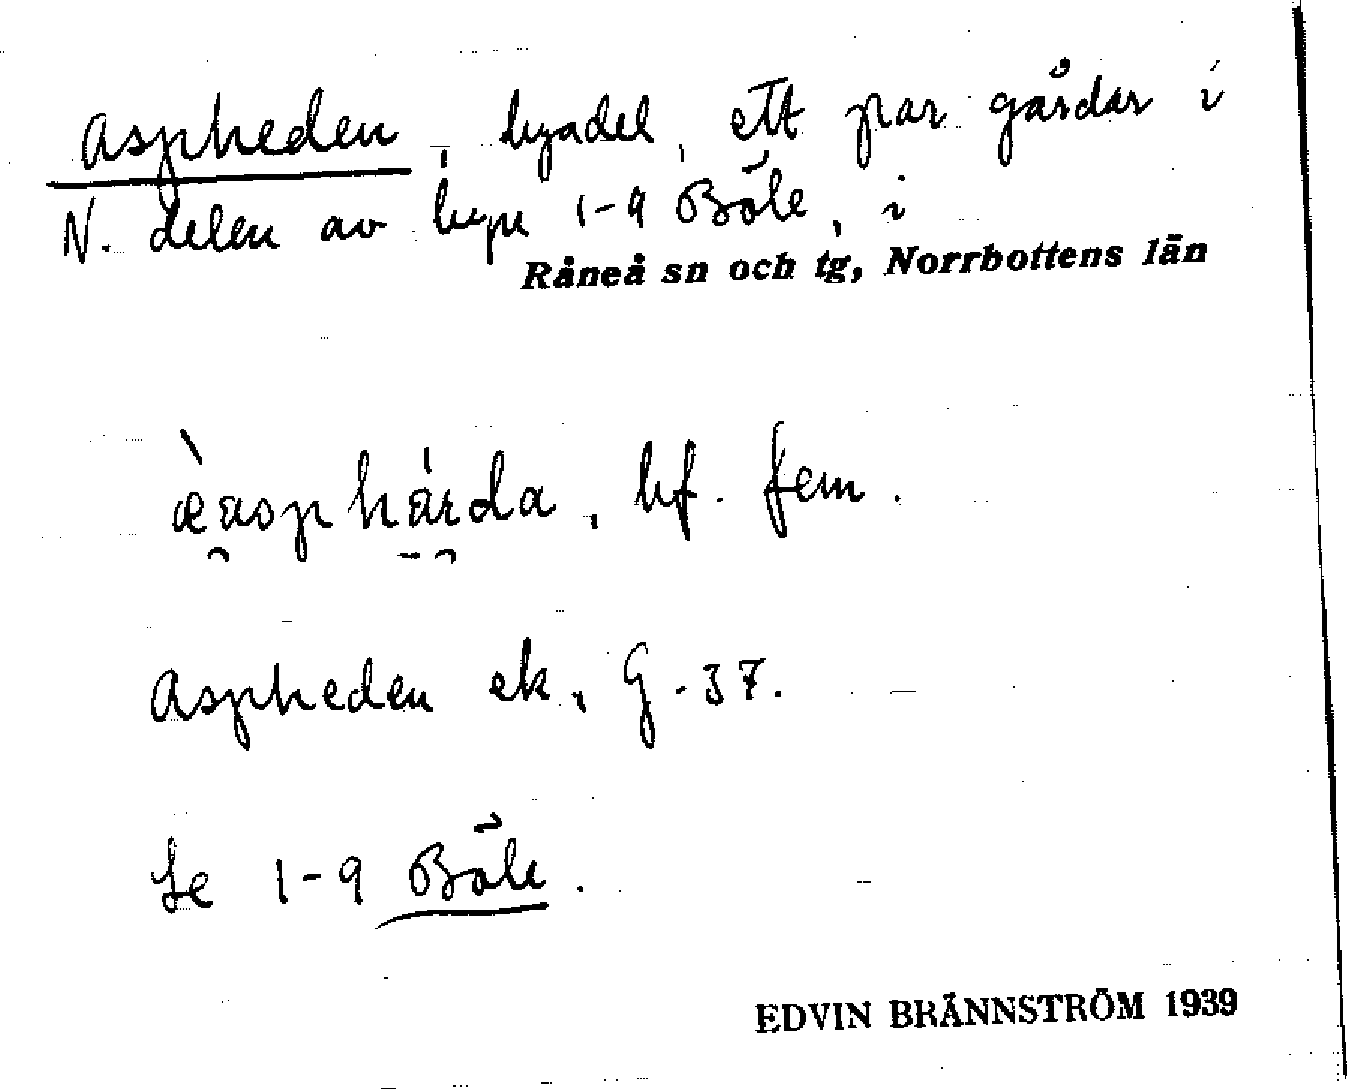 Aspheden, byadel, ett par gårdar i
N. delen av byn 1-9 Böle, i
Råneå sn och tg, Norrbottens län
bf. fem.
Aspheden ek. G-37.
Se 1-9 Böle.
EDVIN BRÄNNSTRÖM 1939